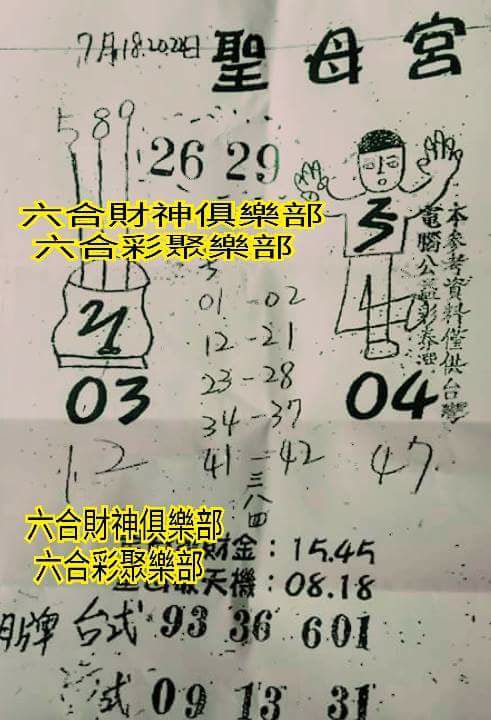 7月18.20.22日
聖母宮
5 8 9
26 29
六合財神俱樂部
六合彩聚樂部
本參考資料僅供台灣
電腦公益彩券
03
04
01-02
12-21
23-28
34-37
41-42
12
47
三八四
六合財神俱樂部
財金:15.45
六合彩聚樂部
天機:08.18
明牌 台式 93 36 601
式 09 13 31